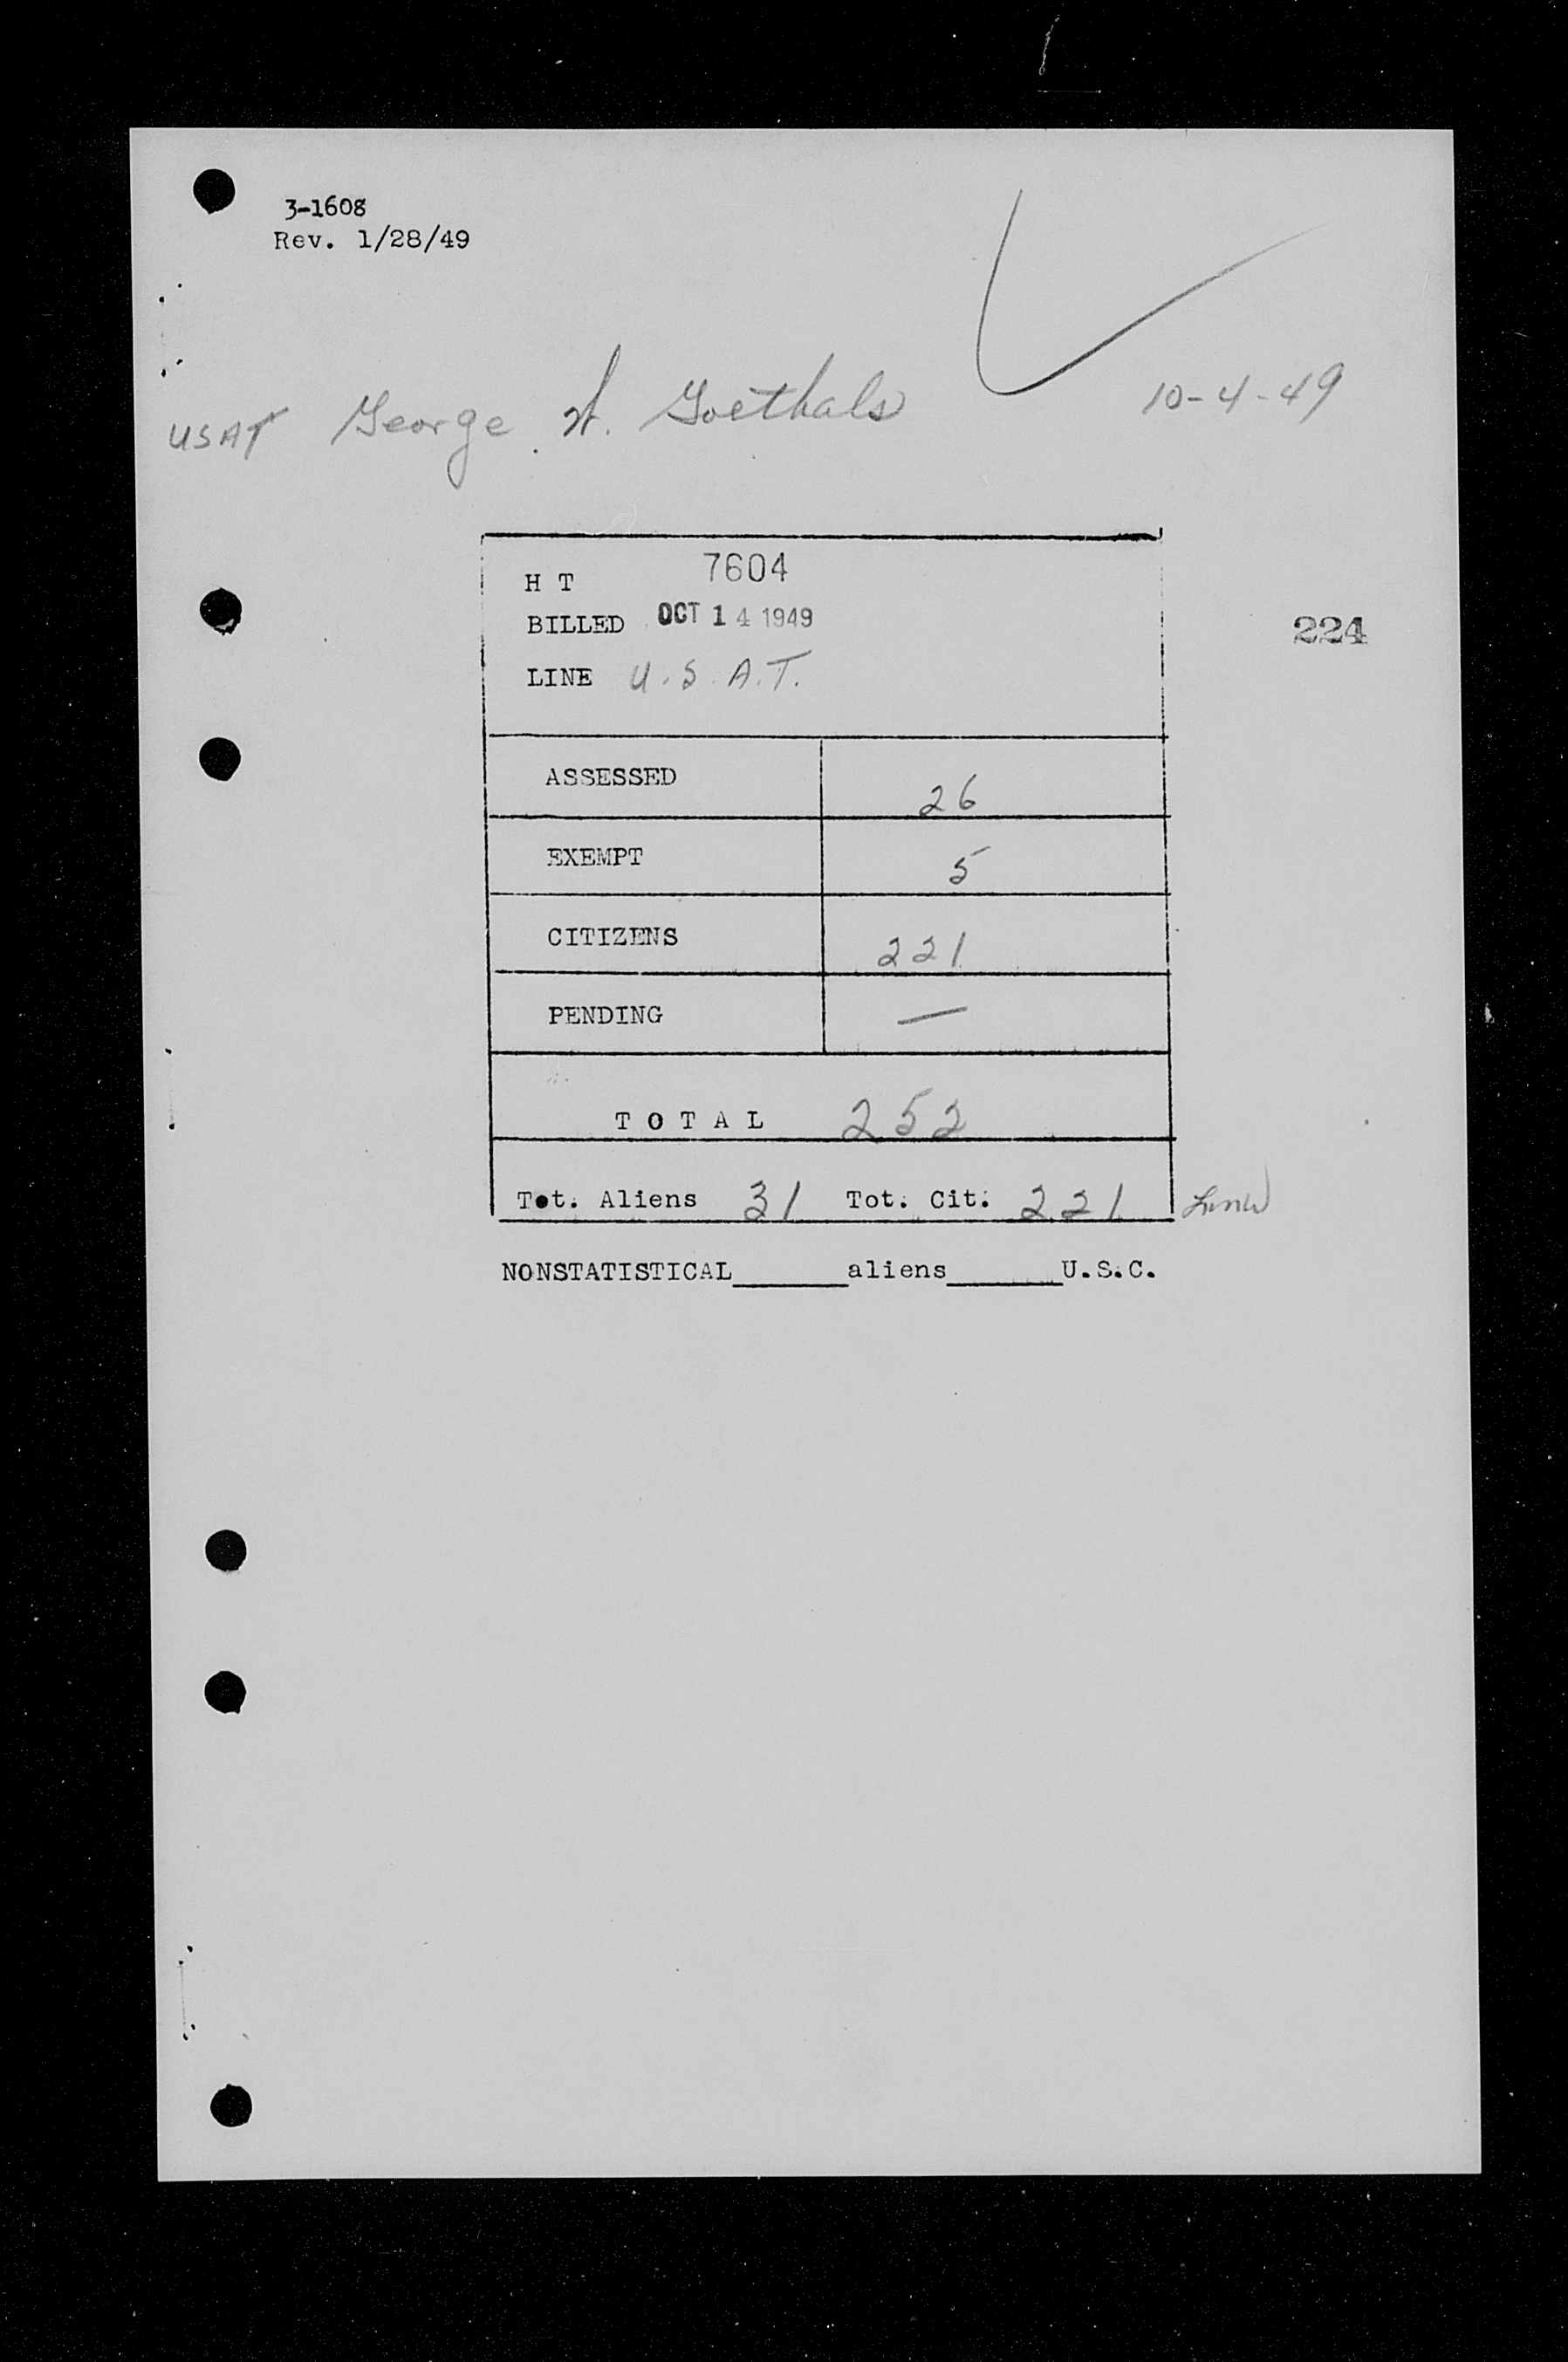 3-1608
Rev. 1/28/49
USAT George W. Goethals 10-4-49
H T 7604
BILLED OCT 14 1949
224
LINE U.S.A.T.
ASSESSED 26
EXEMPT 5
CITIZENS 221
PENDING —
TOTAL 252
Tot. Aliens 31 Tot. Cit. 221
NONSTATISTICAL______aliens______U.S.C.